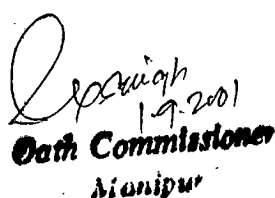 1.9.2001
Oath Commissioner
Manipur